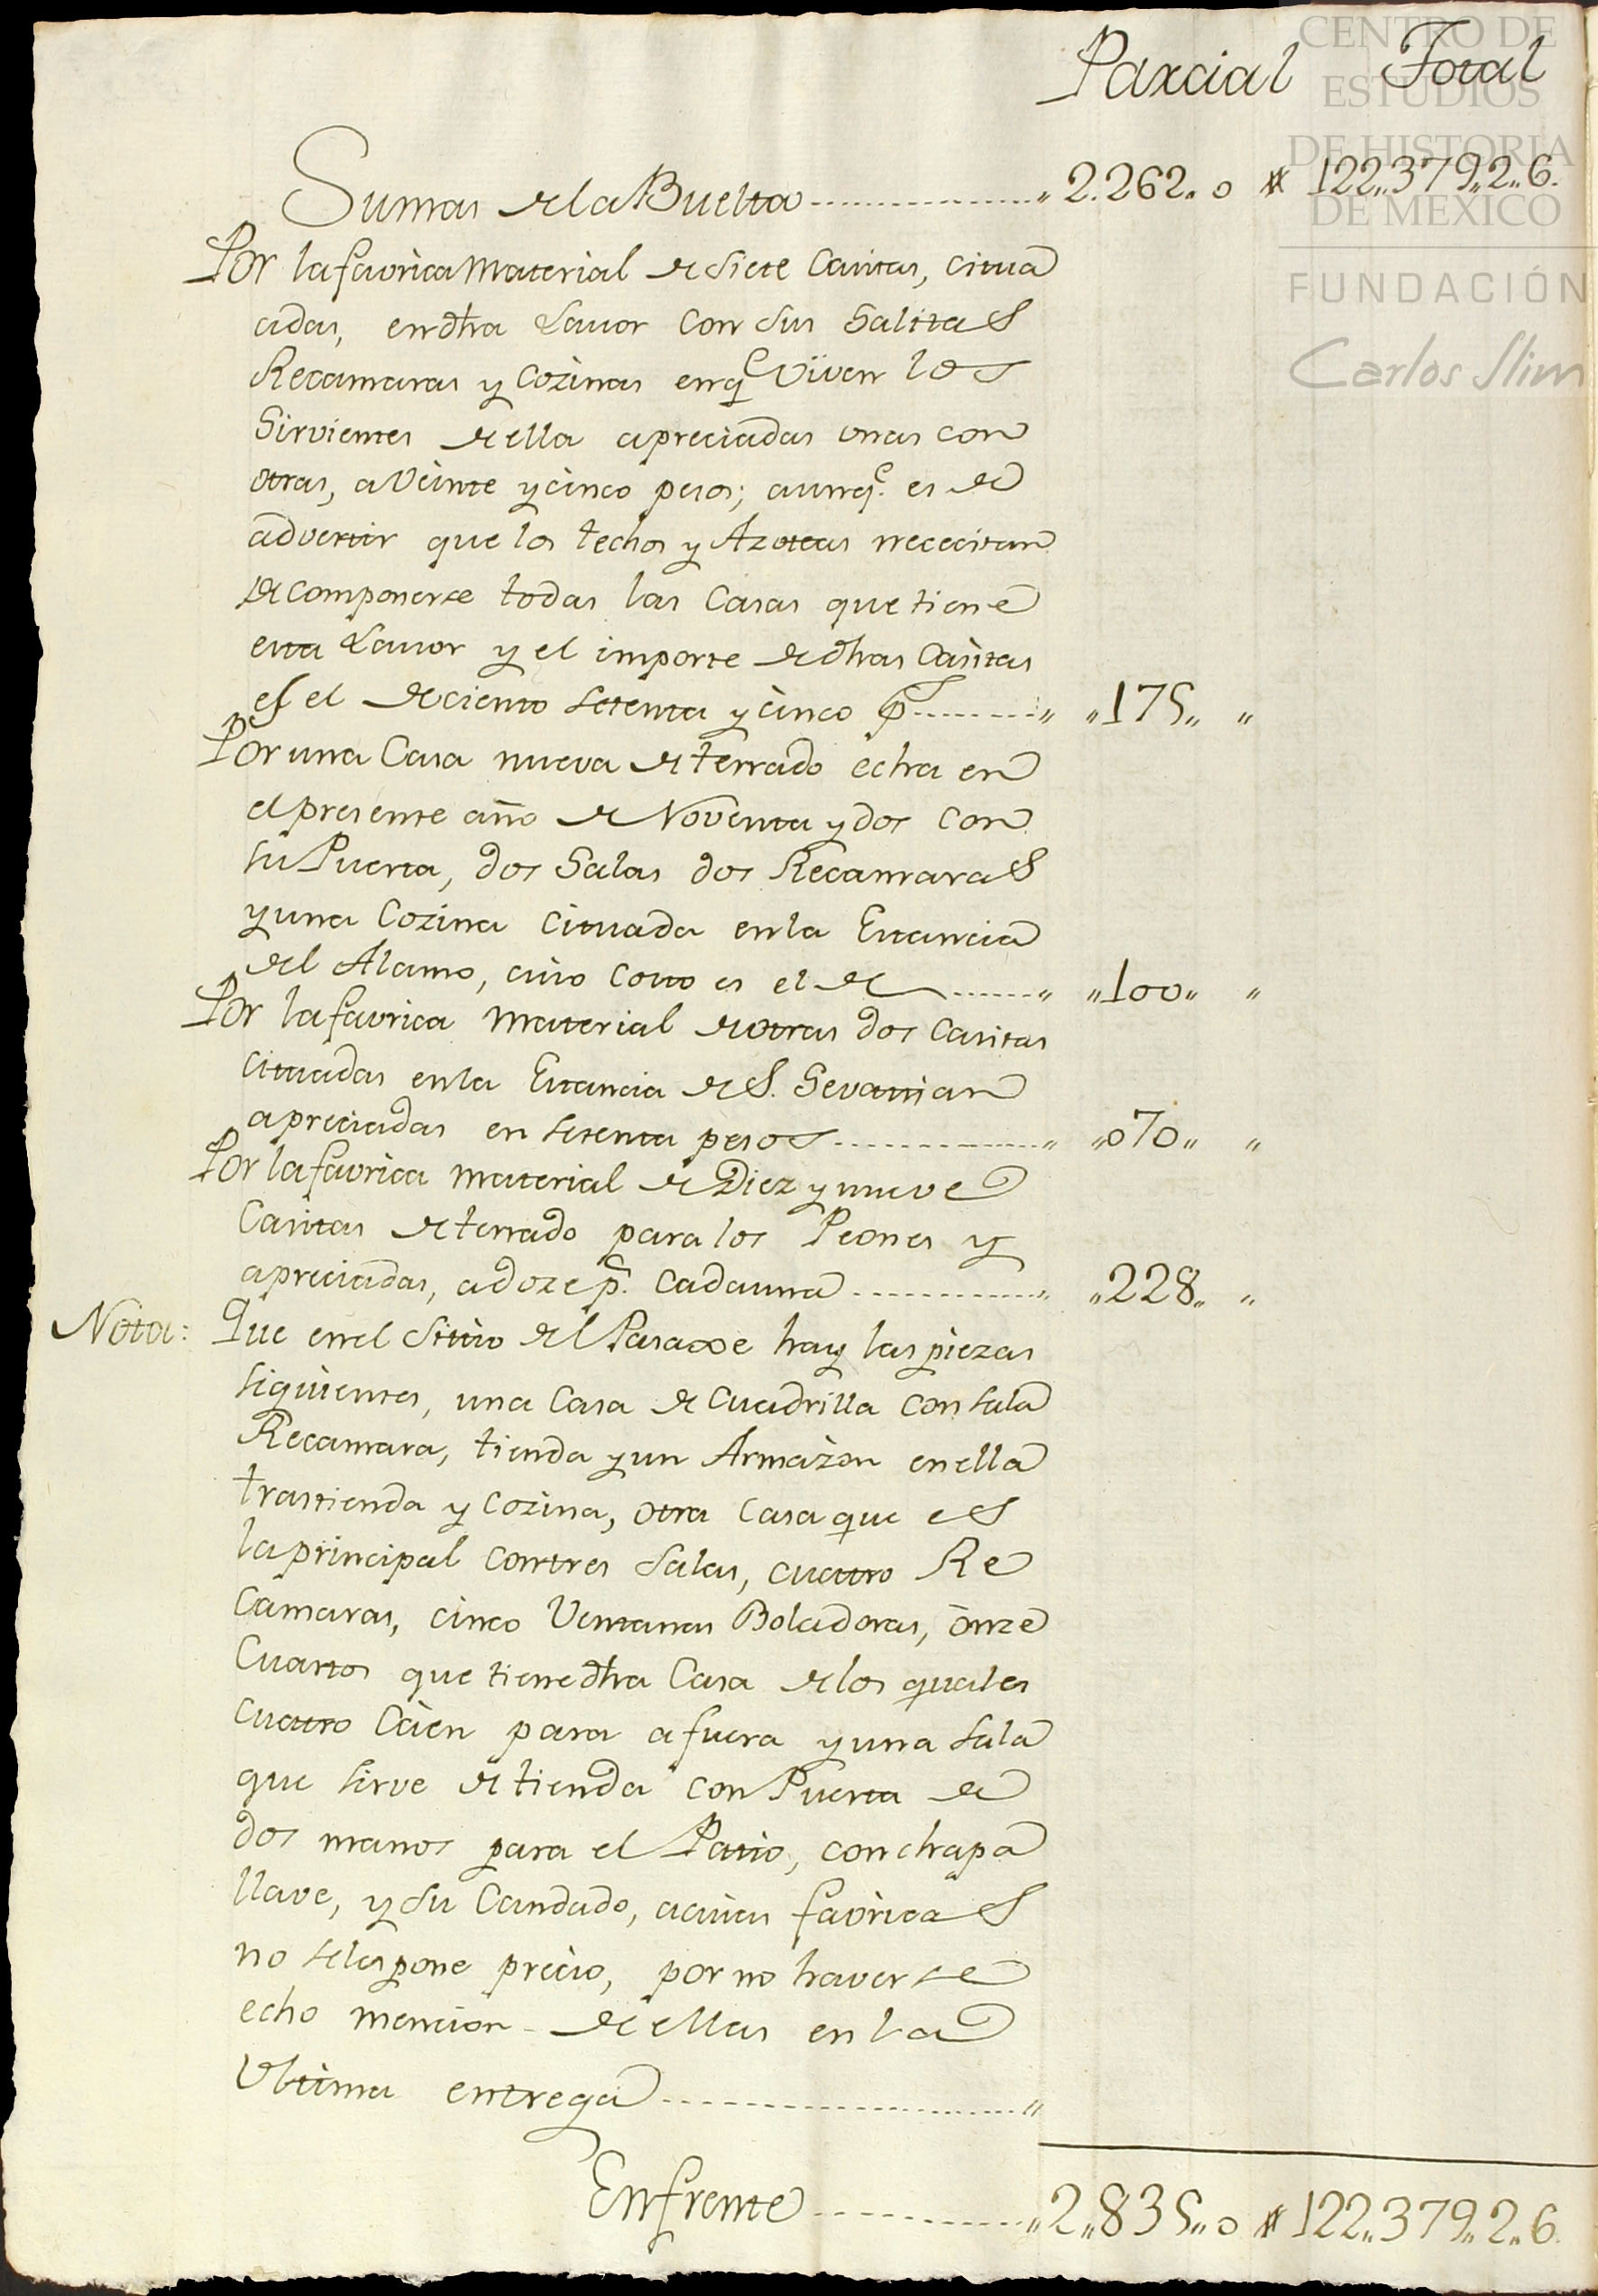 CENTRO DE
ESTUDIOS
DE HISTORIA
DE MÉXICO
FUNDACIÓN
Carlos Slim
Parcial Total
Sumas de la Buelta ................ „ 2.262„ 0 # 122„379„2„6.
Por la favrica Material de siete Casitas, citua
adas, en dha Lavor con sus Salitas
Recamaras y Cozinas en q.e viven los
Sirvientes de ella apreciadas unas con
otras, a veinte y cinco pesos; aunq.e es de
advertir que los techos y Azoteas nececitan
de componerse todas las Casas que tiene
esta Lavor y el importe de dhas Casitas
es el de ciento setenta y cinco p.s ......... „ „175„ „
Por una Casa nueva de terrado echa en
el presente año de Noventa y dos con
su Puerta, dos Salas dos Recamaras
y una Cozina Cituada en la Estancia
del Alamo, cuio costo es el de ....... „ „100„ „
Por la favrica Material de otras dos Casitas
cituadas en la Estancia de S. Sevastian
apreciadas en setenta pesos ............... „ „070„ „
Por la favrica Material de Diez y nueve
Casitas de terrado para los Peones y
apreciadas, a doze p.s cada una ............. „ „228„ „
Nota: Que en el Sitio del Pasaxe hay las piezas
siguientes, una Casa de Cuadrilla con sala
Recamara, tienda y un Armazon en ella
trastienda y Cozina, otra Casa que es
la principal con tres Salas, cuatro Re
Camaras, cinco Ventanas Boladoras, onze
Cuartos que tiene dha Casa de los quales
Cuatro Cáen para afuera y una sala
que sirve de tienda con Puerta de
dos manos para el Patio, con chapa
llave, y su Candado, a cuias favricas
no se les pone precio, por no haverse
echo mencion de ellas en la
Ultima entrega ...................... „
Enfrente ............. „ 2„835„ 0 # 122„379„2„6.